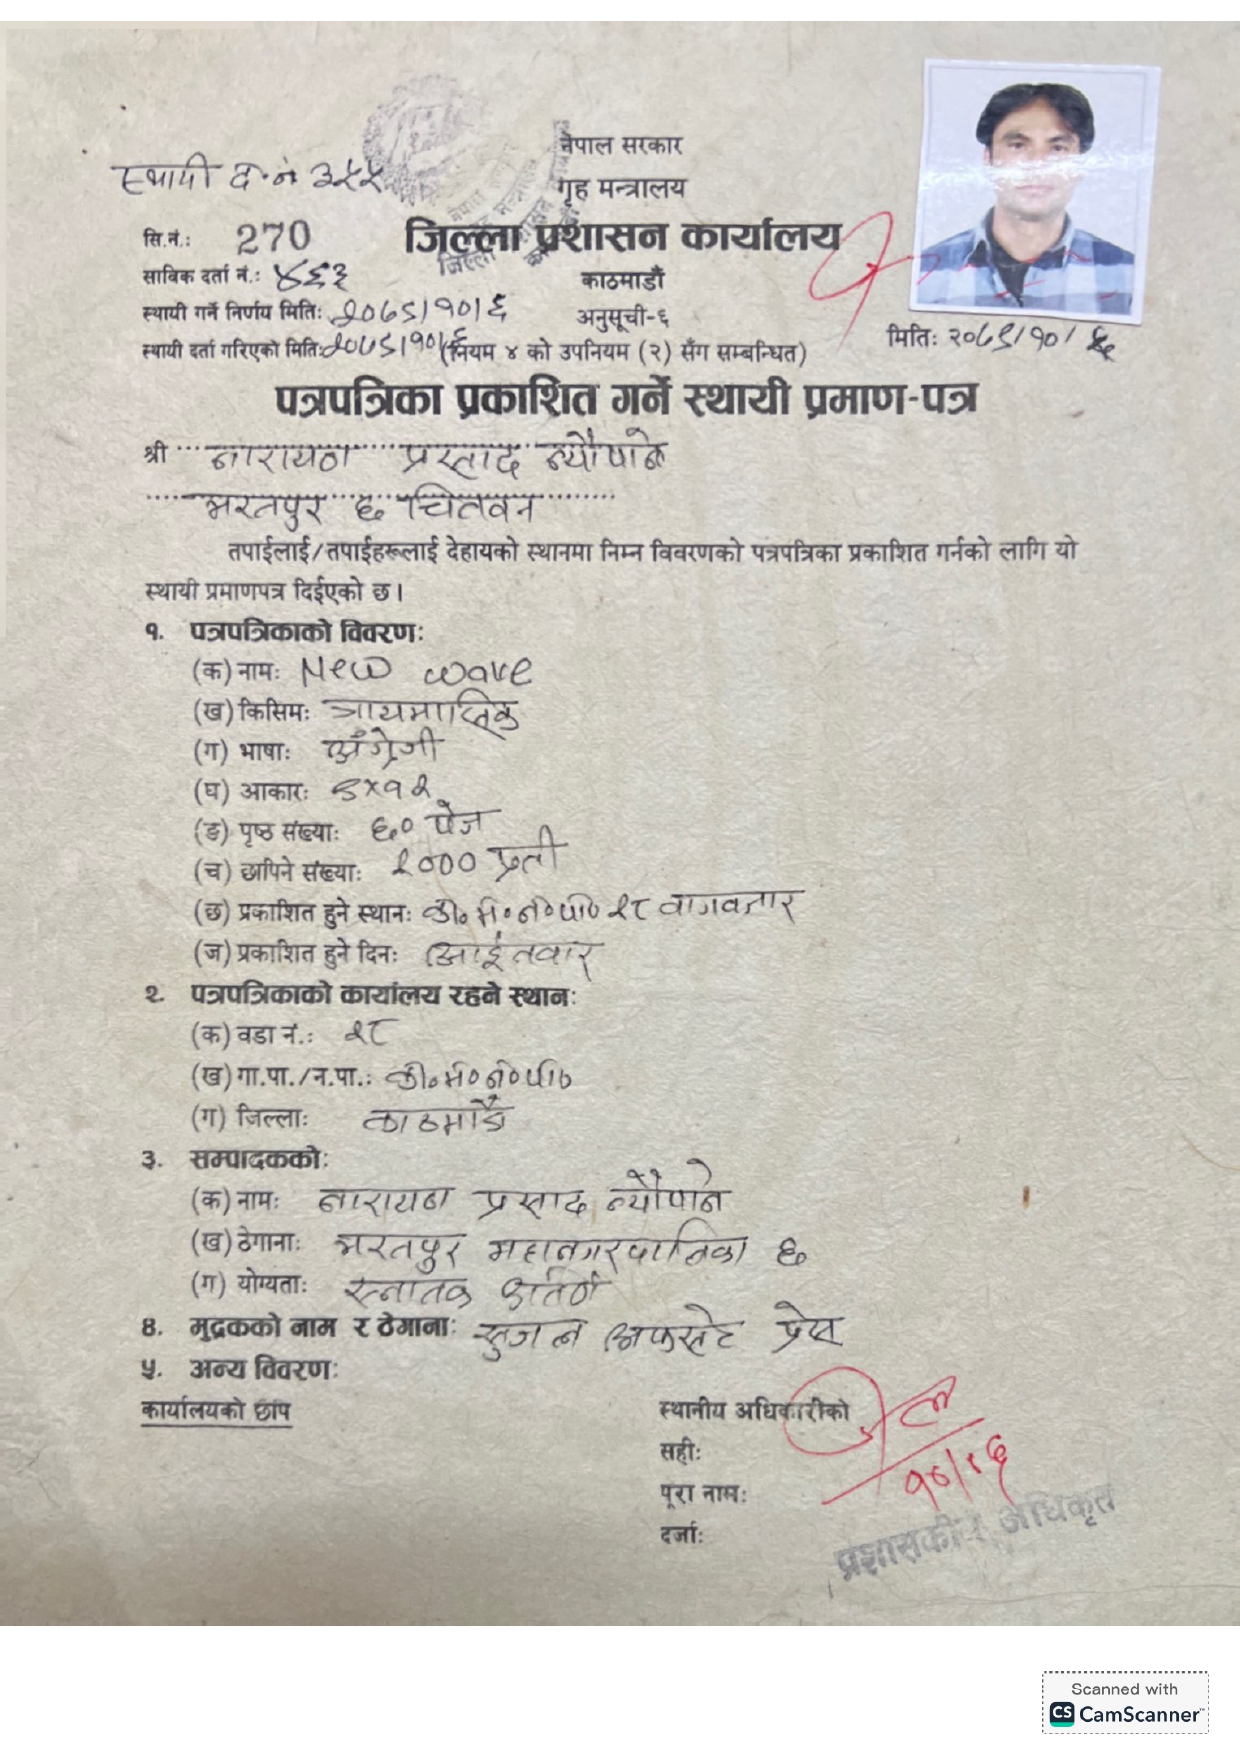 नेपाल सरकार
गृह मन्त्रालय
स्थायी द.नं ३५५
सि.नं.: 270
जिल्ला प्रशासन कार्यालय
साविक दर्ता नं.: ४६३
काठमाडौं
स्थायी गर्ने निर्णय मिति: २०७९।१०।६
अनुसूची-६
मिति: २०७९/१०/६
स्थायी दर्ता गरिएको मिति: २०७९।१०।६
(नियम ४ को उपनियम (२) सँग सम्बन्धित)
पत्रपत्रिका प्रकाशित गर्ने स्थायी प्रमाण-पत्र
श्री नारायण प्रसाद न्यौपाने
भरतपुर ६ चितवन
तपाईलाई/तपाईहरूलाई देहायको स्थानमा निम्न विवरणको पत्रपत्रिका प्रकाशित गर्नको लागि यो
स्थायी प्रमाणपत्र दिईएको छ।
१. पत्रपत्रिकाको विवरण:
(क) नाम: New wave
(ख) किसिम: त्रायमासिक
(ग) भाषा: अँग्रेजी
(घ) आकार: ९×१२
(ङ) पृष्ठ संख्या: ६० पेज
(च) छापिने संख्या: २००० प्रती
(छ) प्रकाशित हुने स्थान: का०म०न०पा० २८ वागवजार
(ज) प्रकाशित हुने दिन: आईतवार
२. पत्रपत्रिकाको कार्यालय रहने स्थान:
(क) वडा नं.: २८
(ख) गा.पा./न.पा.: का०म०न०पा०
(ग) जिल्ला: काठमाडौं
३. सम्पादकको:
(क) नाम: नारायण प्रसाद न्यौपाने
(ख) ठेगाना: भरतपुर महानगरपालिका ६
(ग) योग्यता: स्नातक
४. मुद्रकको नाम र ठेगाना: सुजन अफसेट प्रेस
५. अन्य विवरण:
कार्यालयको छाप
स्थानीय अधिकारीको
सही:
१०/६
पूरा नाम:
दर्जा:
प्रशासकीय अधिकृत
Scanned with
CS CamScanner